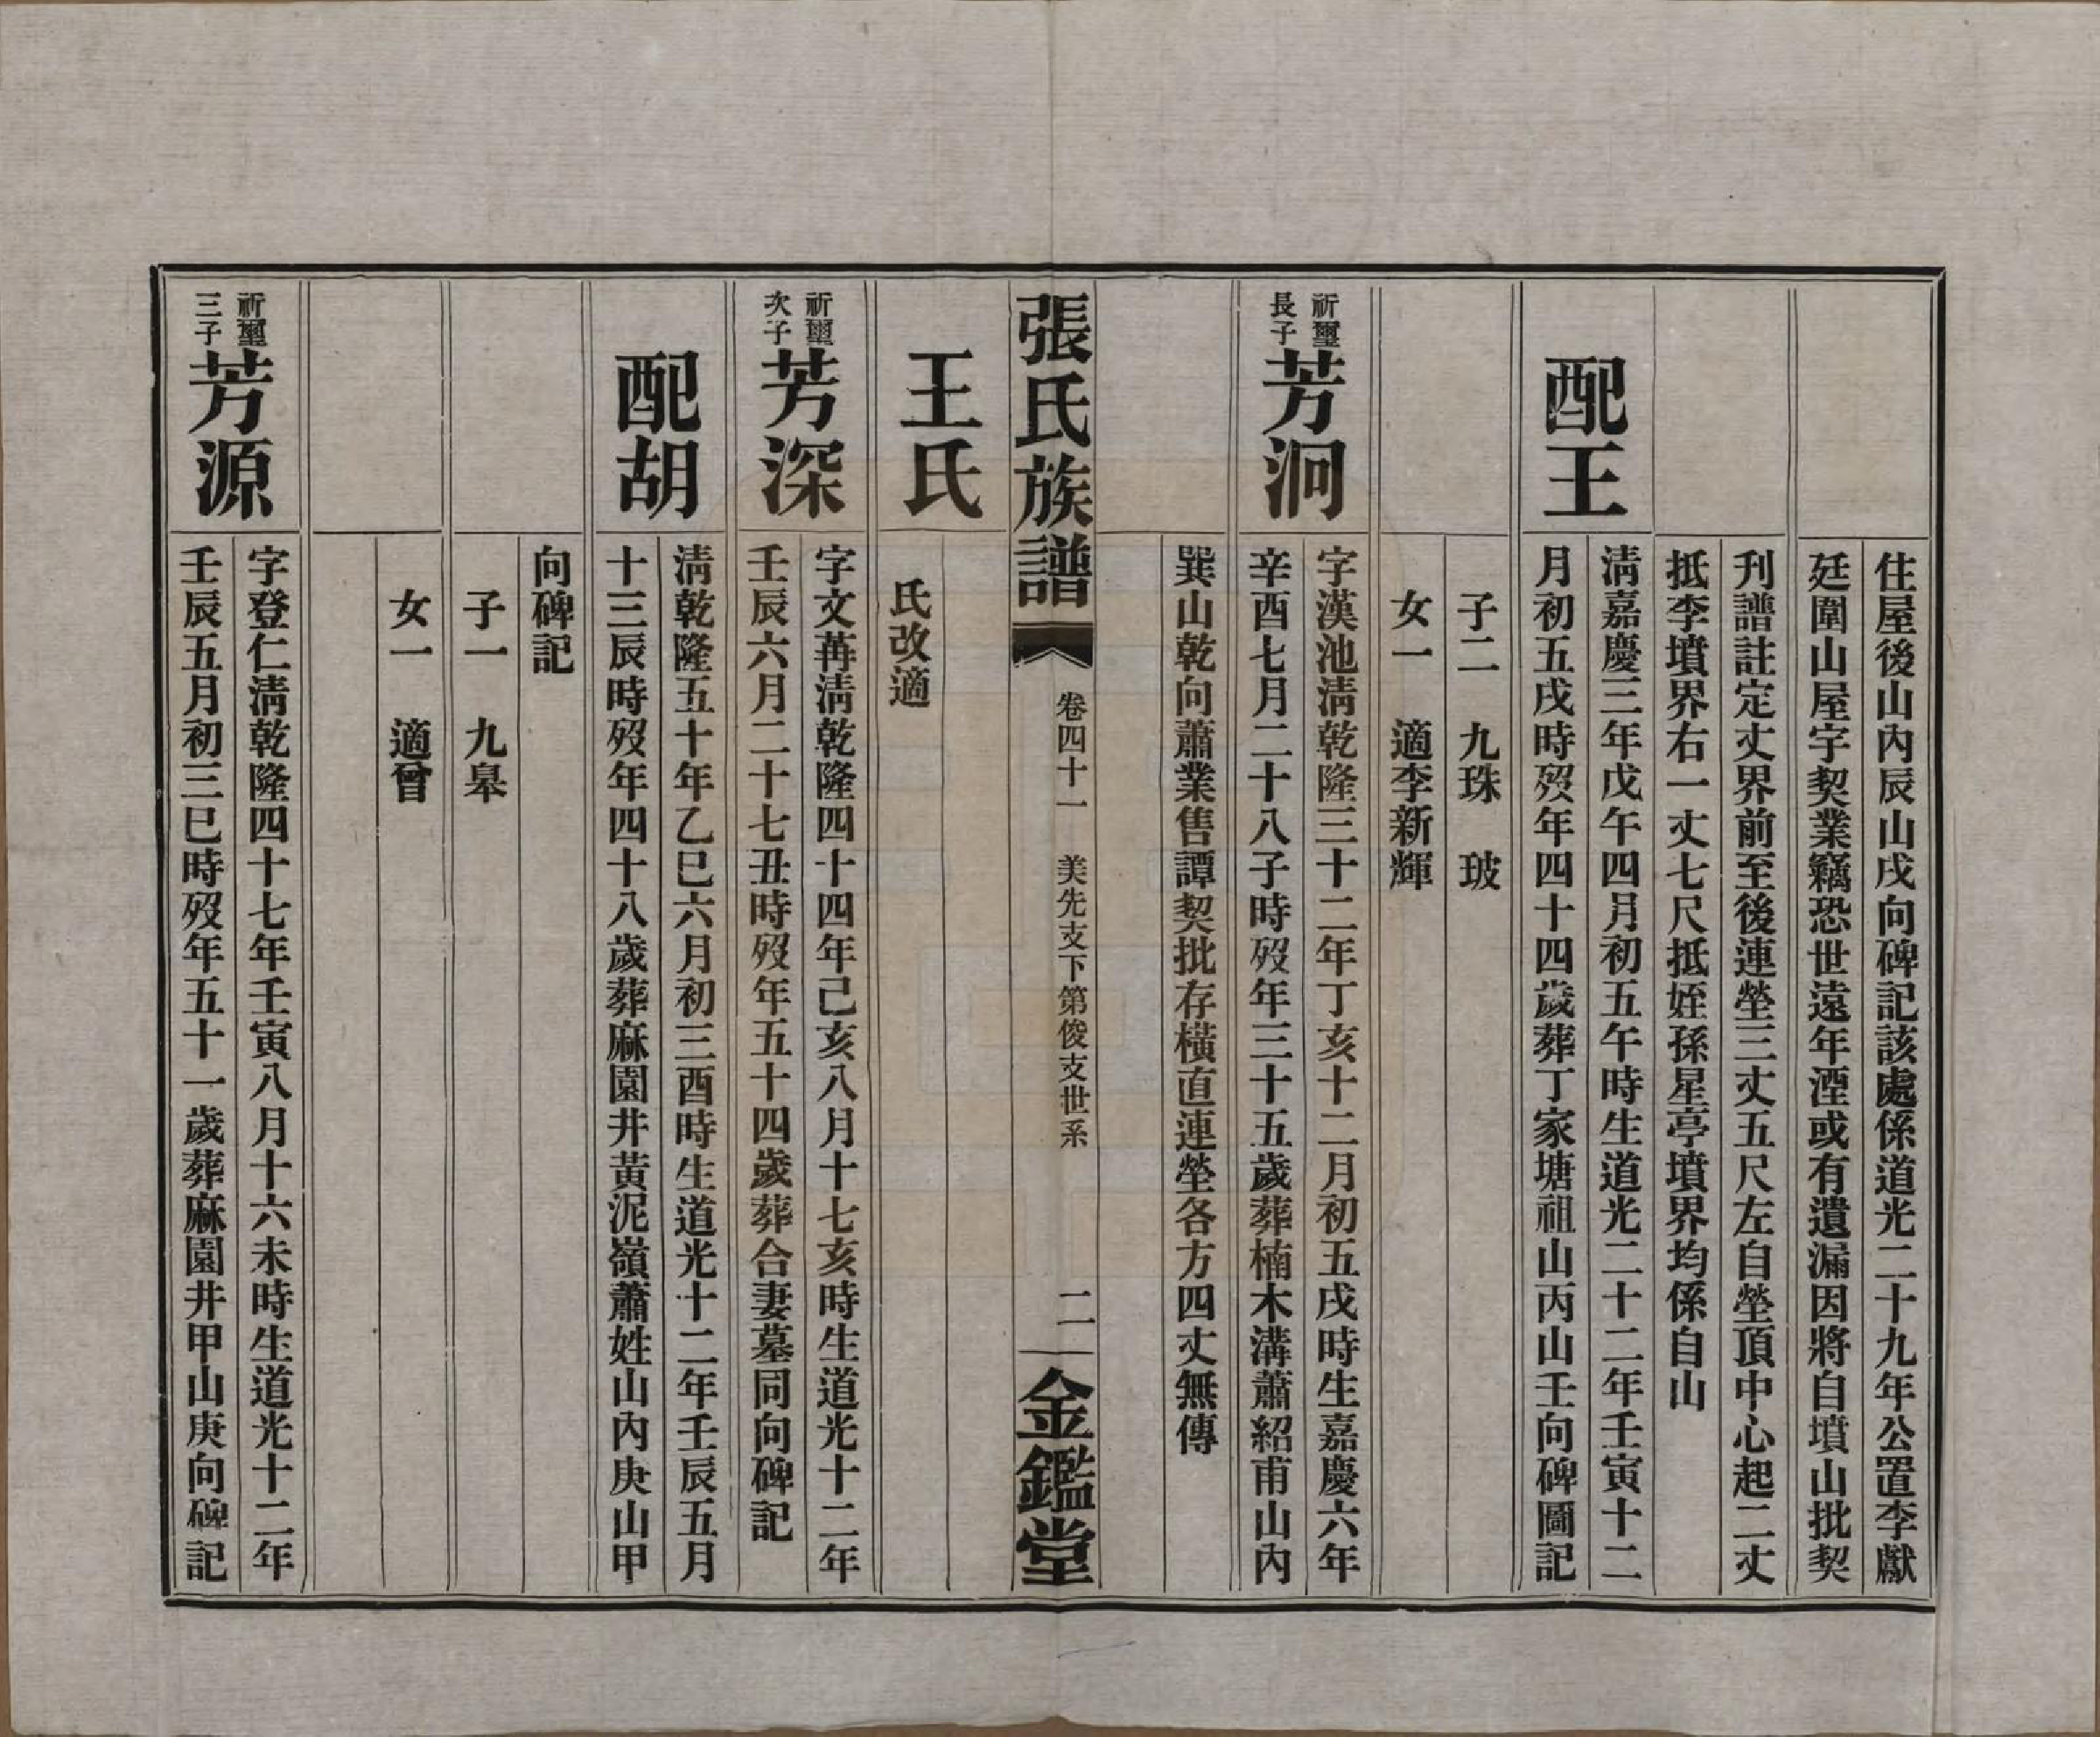 住屋後山內辰山戌向碑記該處係道光二十九年公置李獻
廷圍山屋宇契業竊恐世遠年湮或有遺漏因將自墳山批契
刋譜註定丈界前至後連塋三丈五尺左自塋頂中心起二丈
抵李墳界右一丈七尺抵姪孫星亭墳界均係自山
配王
清嘉慶三年戊午四月初五午時生道光二十二年壬寅十二
月初五戌時歿年四十四歲葬丁家塘祖山丙山壬向碑圖記
子二　九珠　玻
女一　適李新輝
祈璽
長子
芳泂
字漢池淸乾隆三十二年丁亥十二月初五戌時生嘉慶六年
辛酉七月二十八子時歿年三十五歲葬楠木溝蕭紹甫山內
巽山乾向蕭業售譚契批存橫直連塋各方四丈無傳
張氏族譜　卷四十一　美先支下第俊支世系　二　金鑑堂
王氏
氏改適
祈璽
次子
芳深
字文苒淸乾隆四十四年己亥八月十七亥時生道光十二年
壬辰六月二十七丑時歿年五十四歲葬合妻墓同向碑記
配胡
淸乾隆五十年乙巳六月初三酉時生道光十二年壬辰五月
十三辰時歿年四十八歲葬麻園井黃泥嶺蕭姓山內庚山甲
向碑記
子一　九皋
女一　適曾
祈璽
三子
芳源
字登仁淸乾隆四十七年壬寅八月十六未時生道光十二年
壬辰五月初三巳時歿年五十一歲葬麻園井甲山庚向碑記